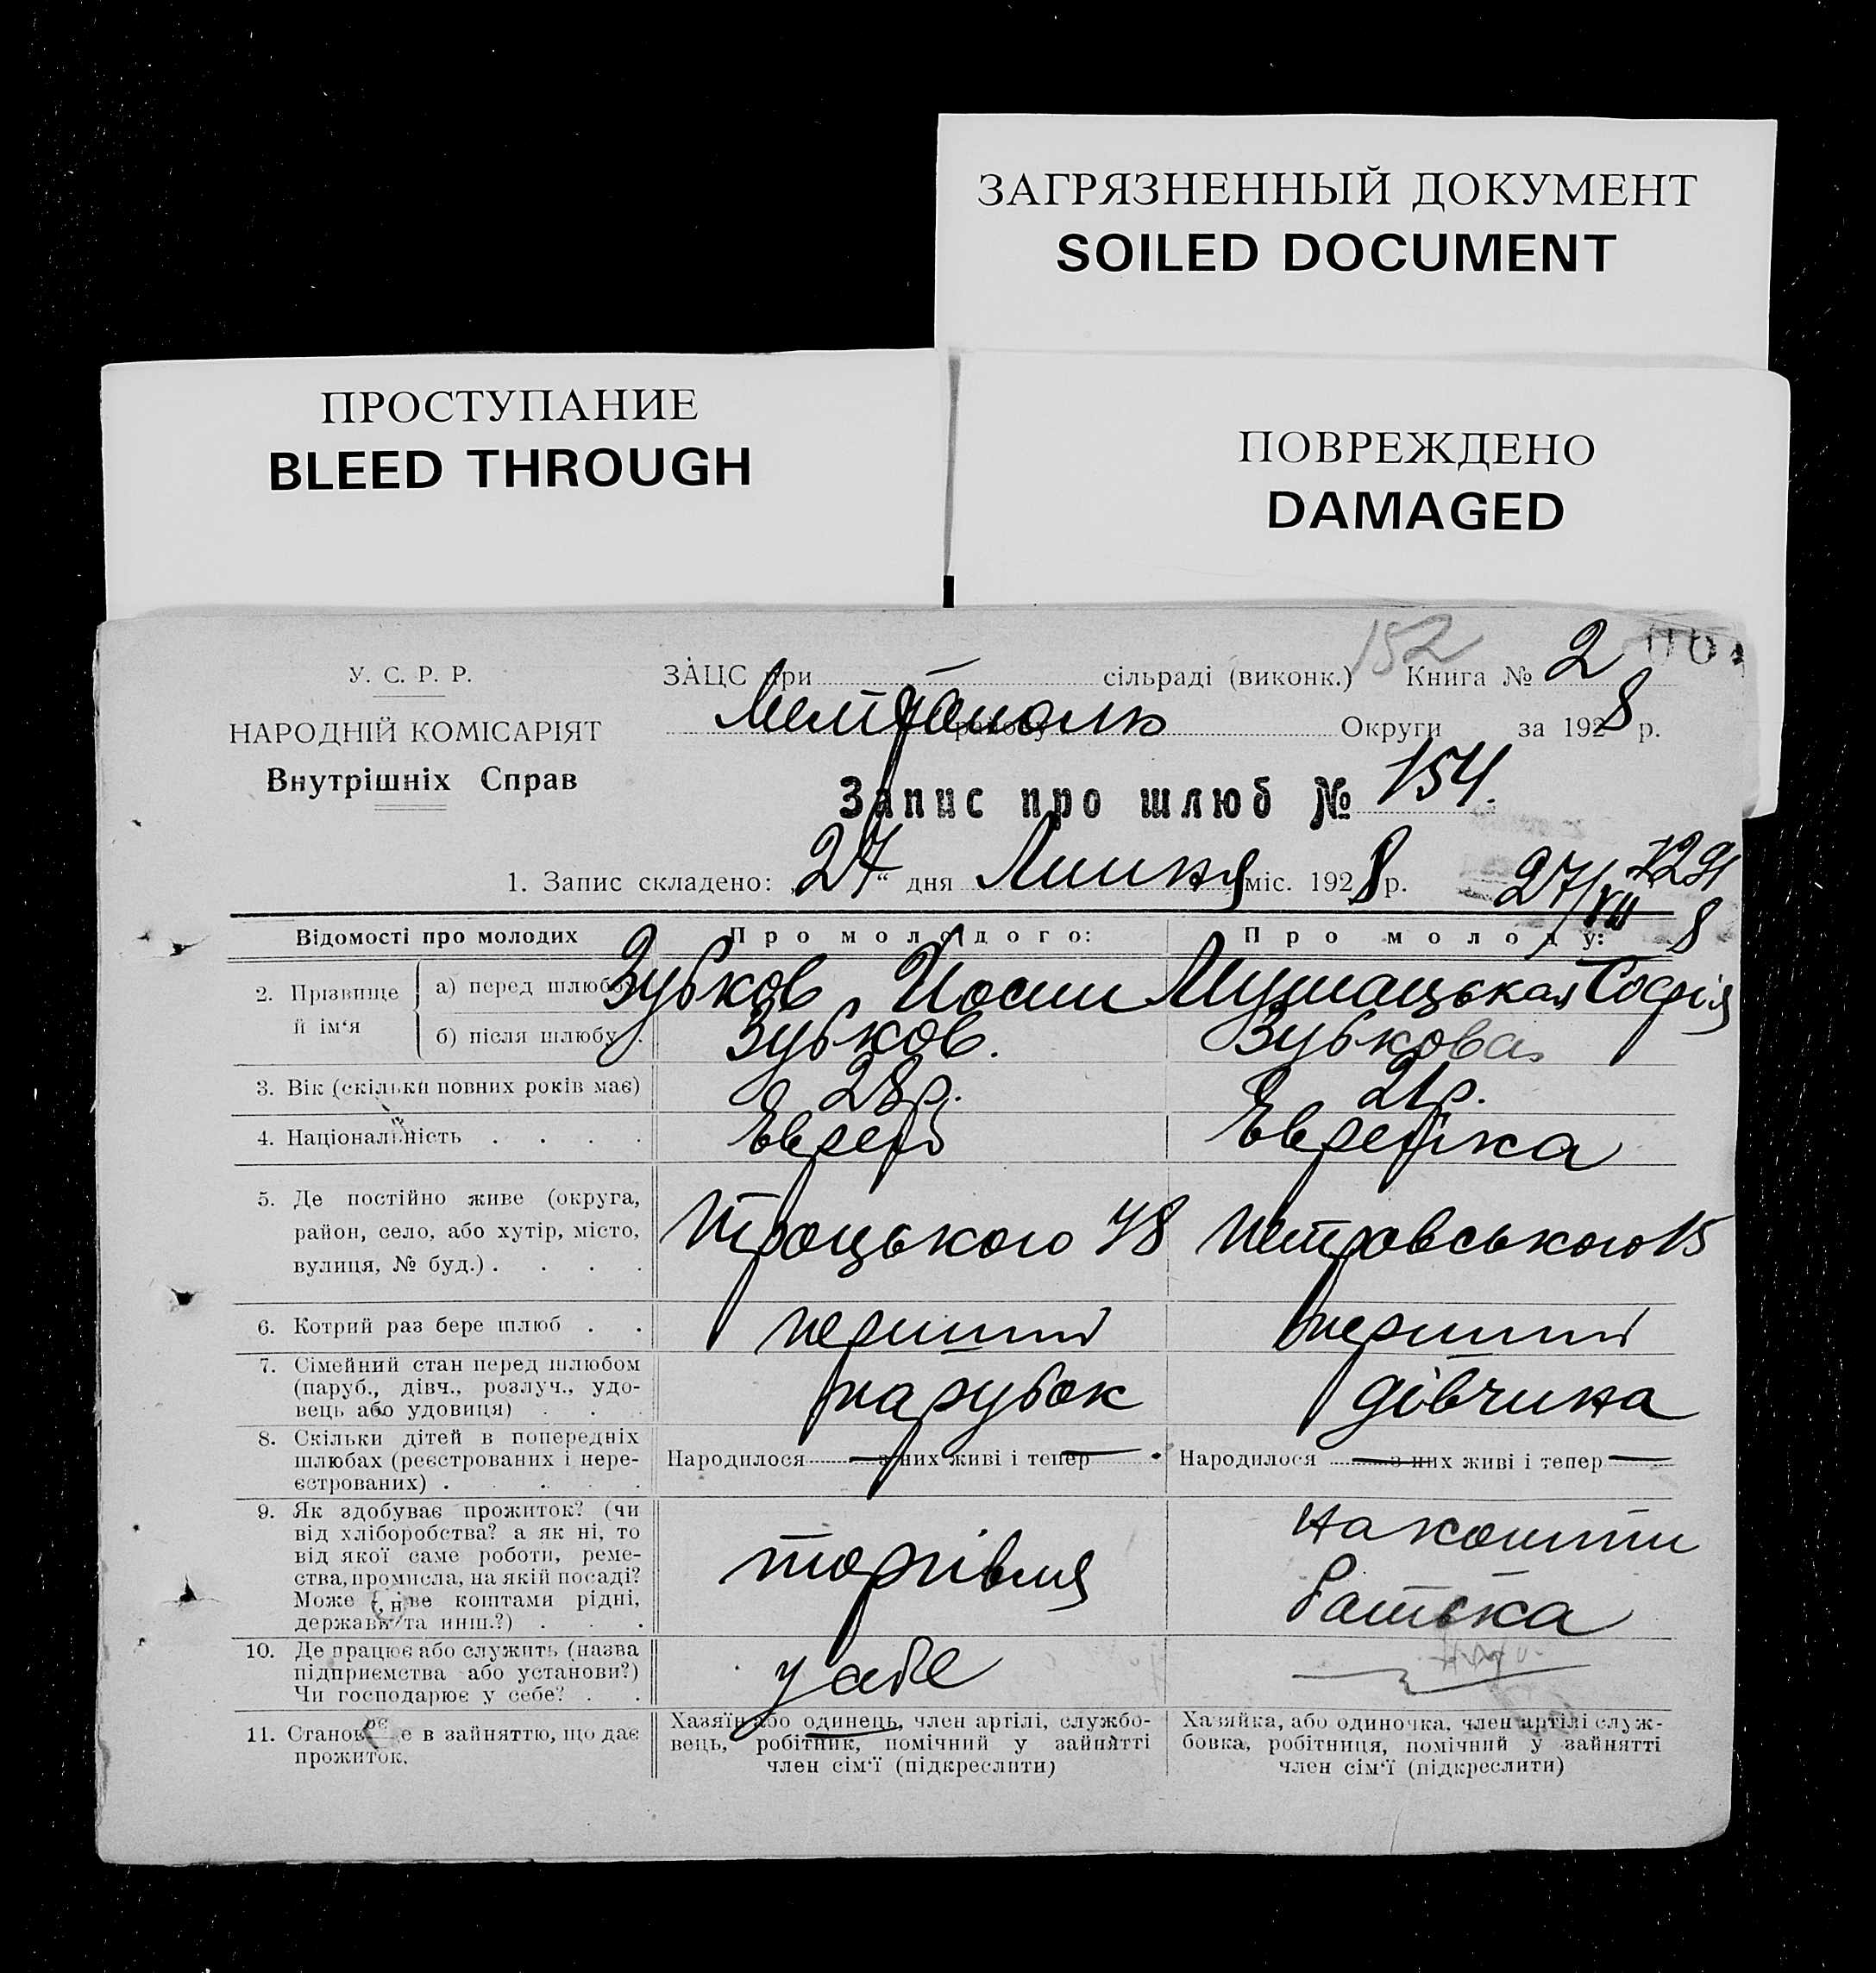 ЗАГРЯЗНЕННЫЙ ДОКУМЕНТ
SOILED DOCUMENT
ПРОСТУПАНИЕ
BLEED THROUGH
ПОВРЕЖДЕНО
DAMAGED
У. С. Р. Р.
НАРОДНІЙ КОМІСАРІЯТ
Внутрішніх Справ
152
ЗАЦС при — сільраді (виконк.) Книга № 2
району Округи за 1928 р.
Запис про шлюб № 154.
1. Запис складено: „27“ дня Липня міс. 1928 р.
27/VII 8
Відомості про молодих Про молодого: Про молоду:
2. Прізвище й ім‘я
а) перед шлюбом Зубков Йосип Мушацькая Софія
б) після шлюбу . Зубков. Зубкова
3. Вік (скільки повних років має) 28 р. 21 р.
4. Національність . . . . Еврей Еврейка
5. Де постійно живе (округа,
район, село, або хутір, місто,
вулиця, № буд.) . . . .
Троцького 48 Петровського 15
6. Котрий раз бере шлюб . . перший перший
7. Сімейний стан перед шлюбом
(паруб., дівч., розлуч., удо-
вець або удовиця) . . .
парубок дівчина
8. Скільки дітей в попередніх
шлюбах (реєстрованих і нере-
єстрованих) . . . . .
Народилося — з них живі і тепер — Народилося — з них живі і тепер —
9. Як здобуває прожиток? (чи
від хліборобства? а як ні, то
від якої саме роботи, реме-
ства, промисла, на якій посаді?
Може живе коштами рідні,
держави та инш.?) . . .
торгівля
на кошти
батька
10. Де працює або служить (назва
підприємства або установи?)
Чи господарює у себе? . .
у себе —
11. Становище в зайняттю, що дає
прожиток.
Хазяїн або одинець, член артілі, службо-
вець, робітник, помічний у зайнятті
член сім‘ї (підкреслити)
Хазяйка, або одиночка, член артілі служ-
бовка, робітниця, помічний у зайнятті
член сім‘ї (підкреслити)